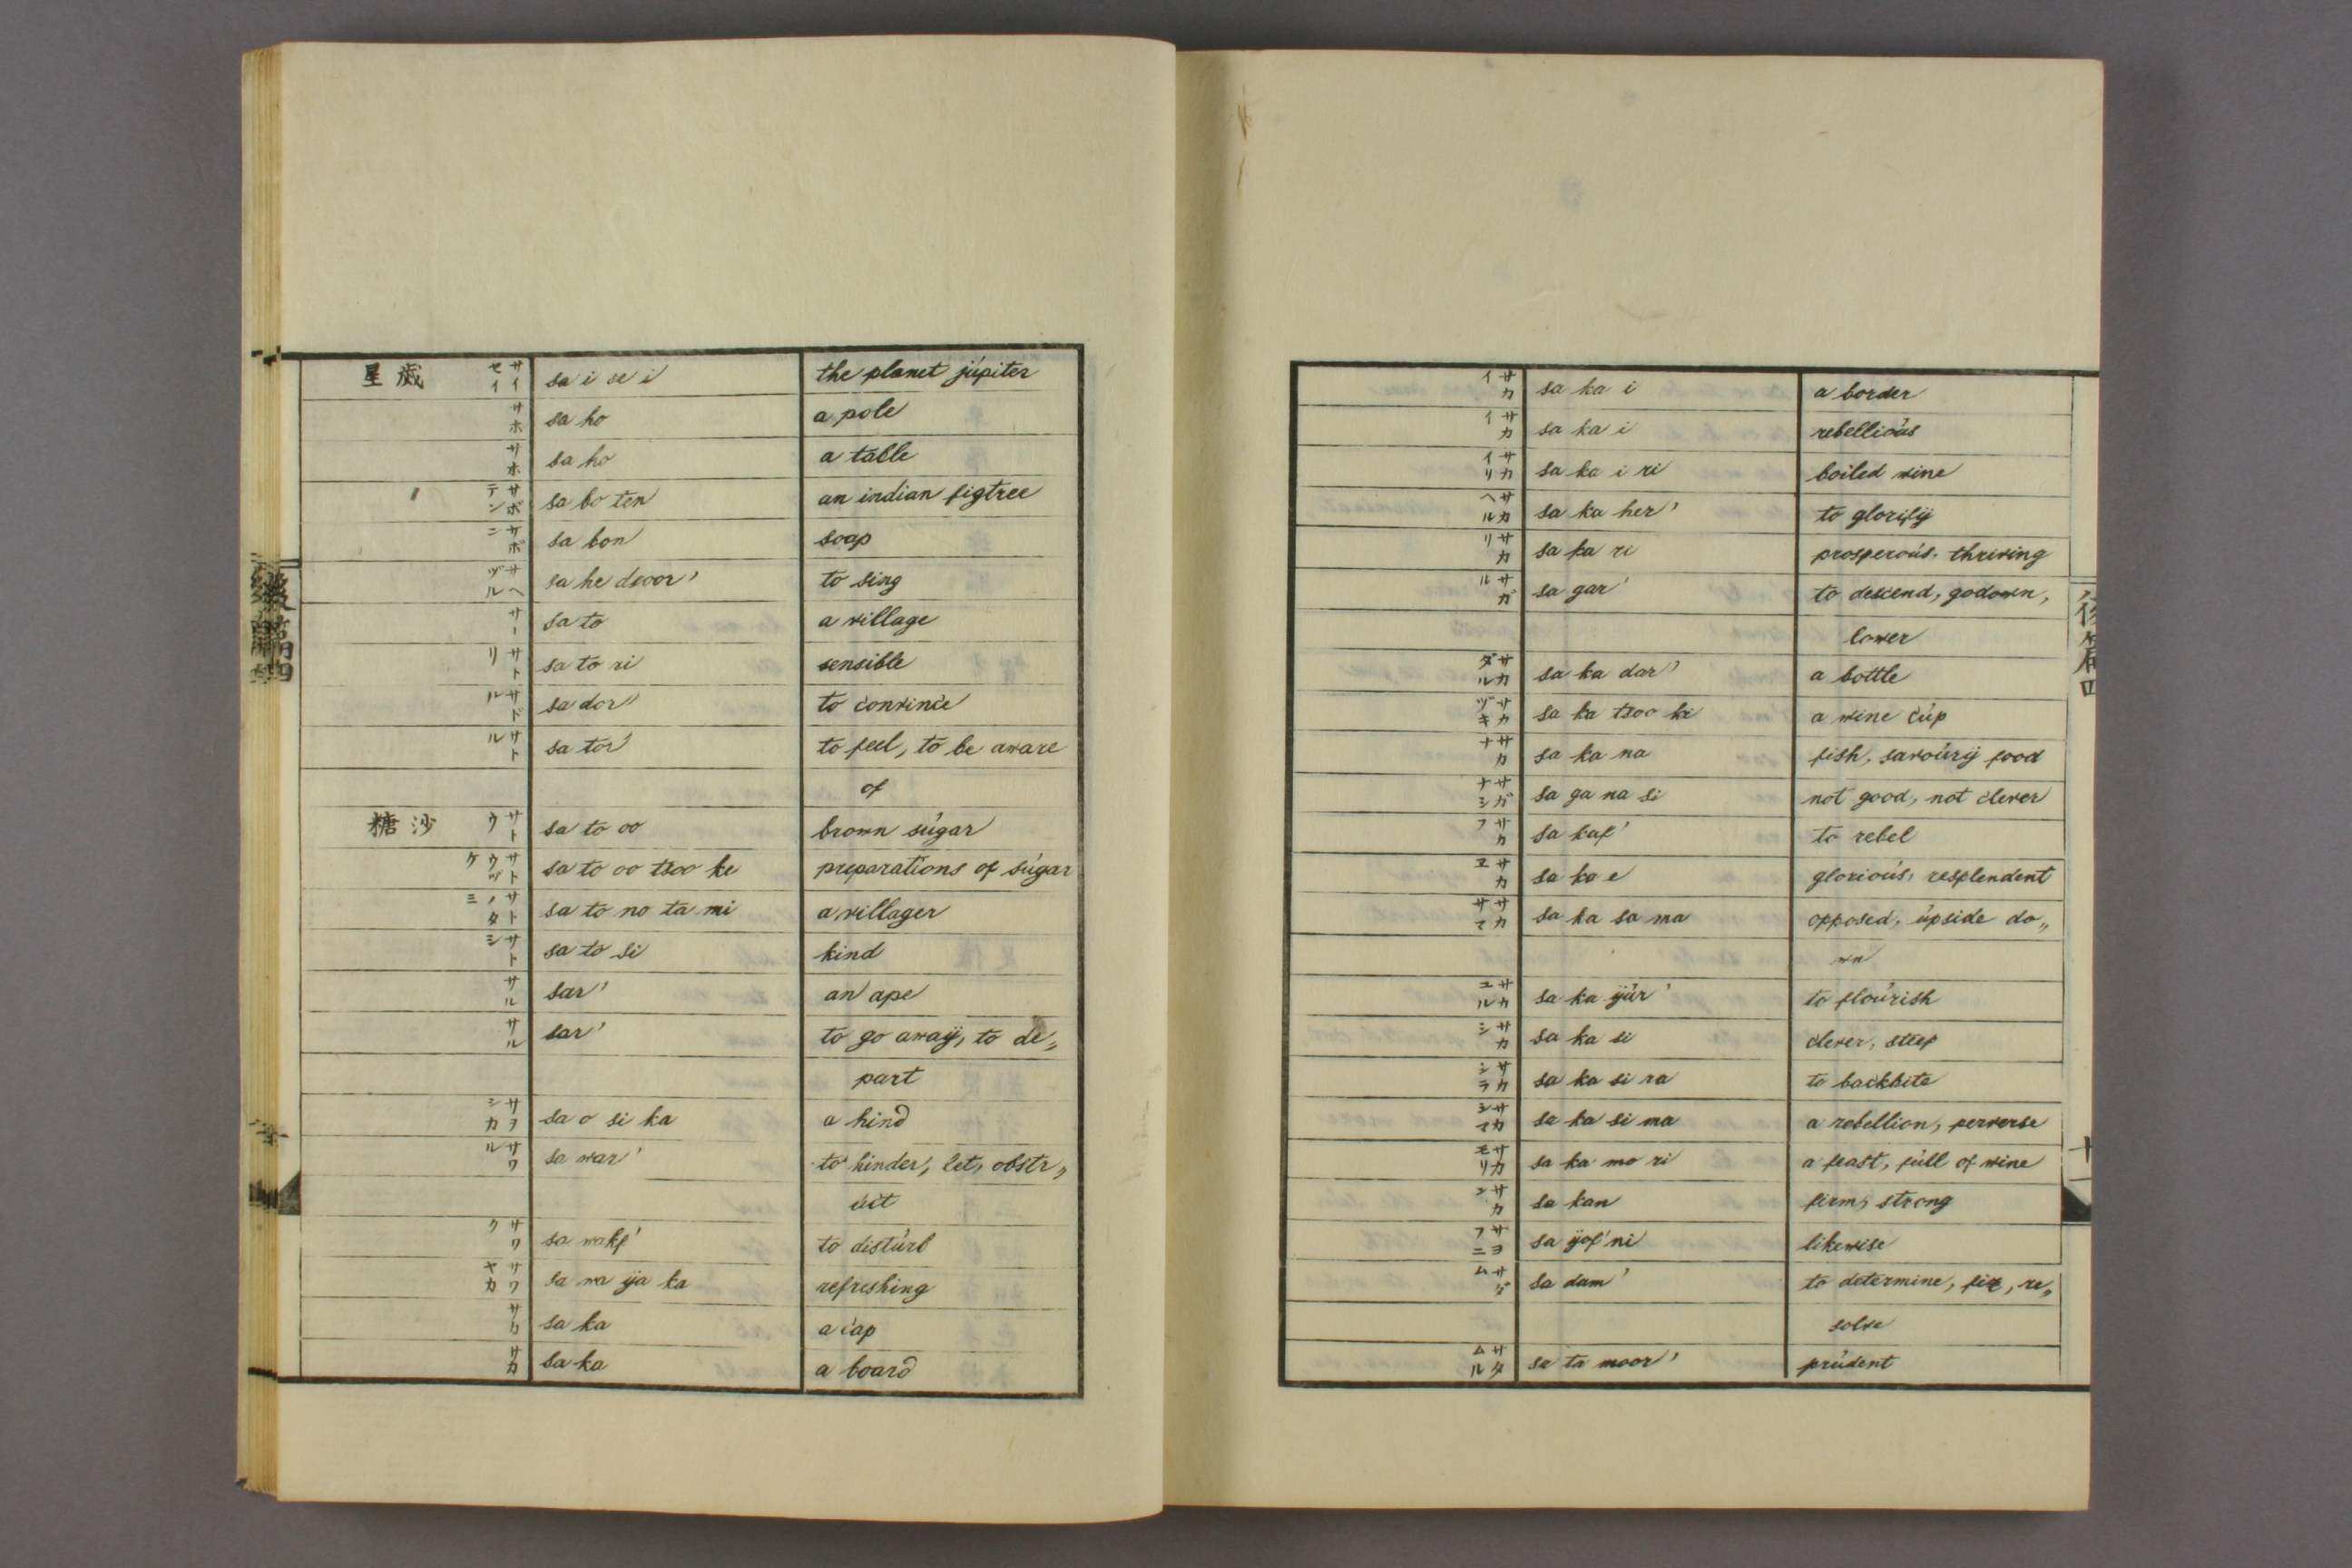 歳星 サイセイ sa i se i the planet júpiter
サホ sa ho a pole
サホ sa ho a table
サボテン sa bo ten an indian figtree
サボン sa bon soap
サヘヅル sa he dzoor' to sing
sa to a village
サトリ sa to ri sensible
サドル sa dor' to convince
サトル sa tor' to feel, to be aware
of
沙糖 サトウ sa to oo brown súgar
サトウヅケ sa to oo tsoo ke preparations of súgar
サトノタミ sa to no ta mi a villager
サトシ sa to si kind
サル sar' an ape
サル sar' to go away, to de„
part
サヲシカ sa o si ka a hind
サワル sa war' to hinder, let, obstr„
úct
サワク sa wakf' to distúrb
サワヤカ sa wa ija ka refreshing
サカ sa ka a cap
サカ sa ka a board
サカイ sa ka i a border
サカイ sa ka i rebellioús
サカイリ sa ka i ri boiled wine
サカヘル sa ka her' to glorify
サカリ sa ka ri prosperoús, thriving
サガル sa gar' to descend, godown,
lower
サカダル sa ka dar' a bottle
サカヅキ sa ka tsoo ki a wine cúp
サカナ sa ka na fish, savoúry food
サガナシ sa ga na si not good, not clever
サカフ sa kaf' to rebel
サカヱ sa ka e glorioús, resplendent
サカサマ sa ka sa ma opposed, úpside do„
wn
サカユル sa ka ijúr' to floúrish
サカシ sa ka si clever, steep
サカシラ sa ka si ra to backbite
サカシマ sa ka si ma a rebellion, perverse
サカモリ sa ka mo ri a feast, fúll of wine
サカン sa kan firm, strong
サヨフニ sa ijof' ni likewise
サダム sa dam' to determine, fix, re„
solve
サタムル sa ta moor' prúdent
後篇四
十一